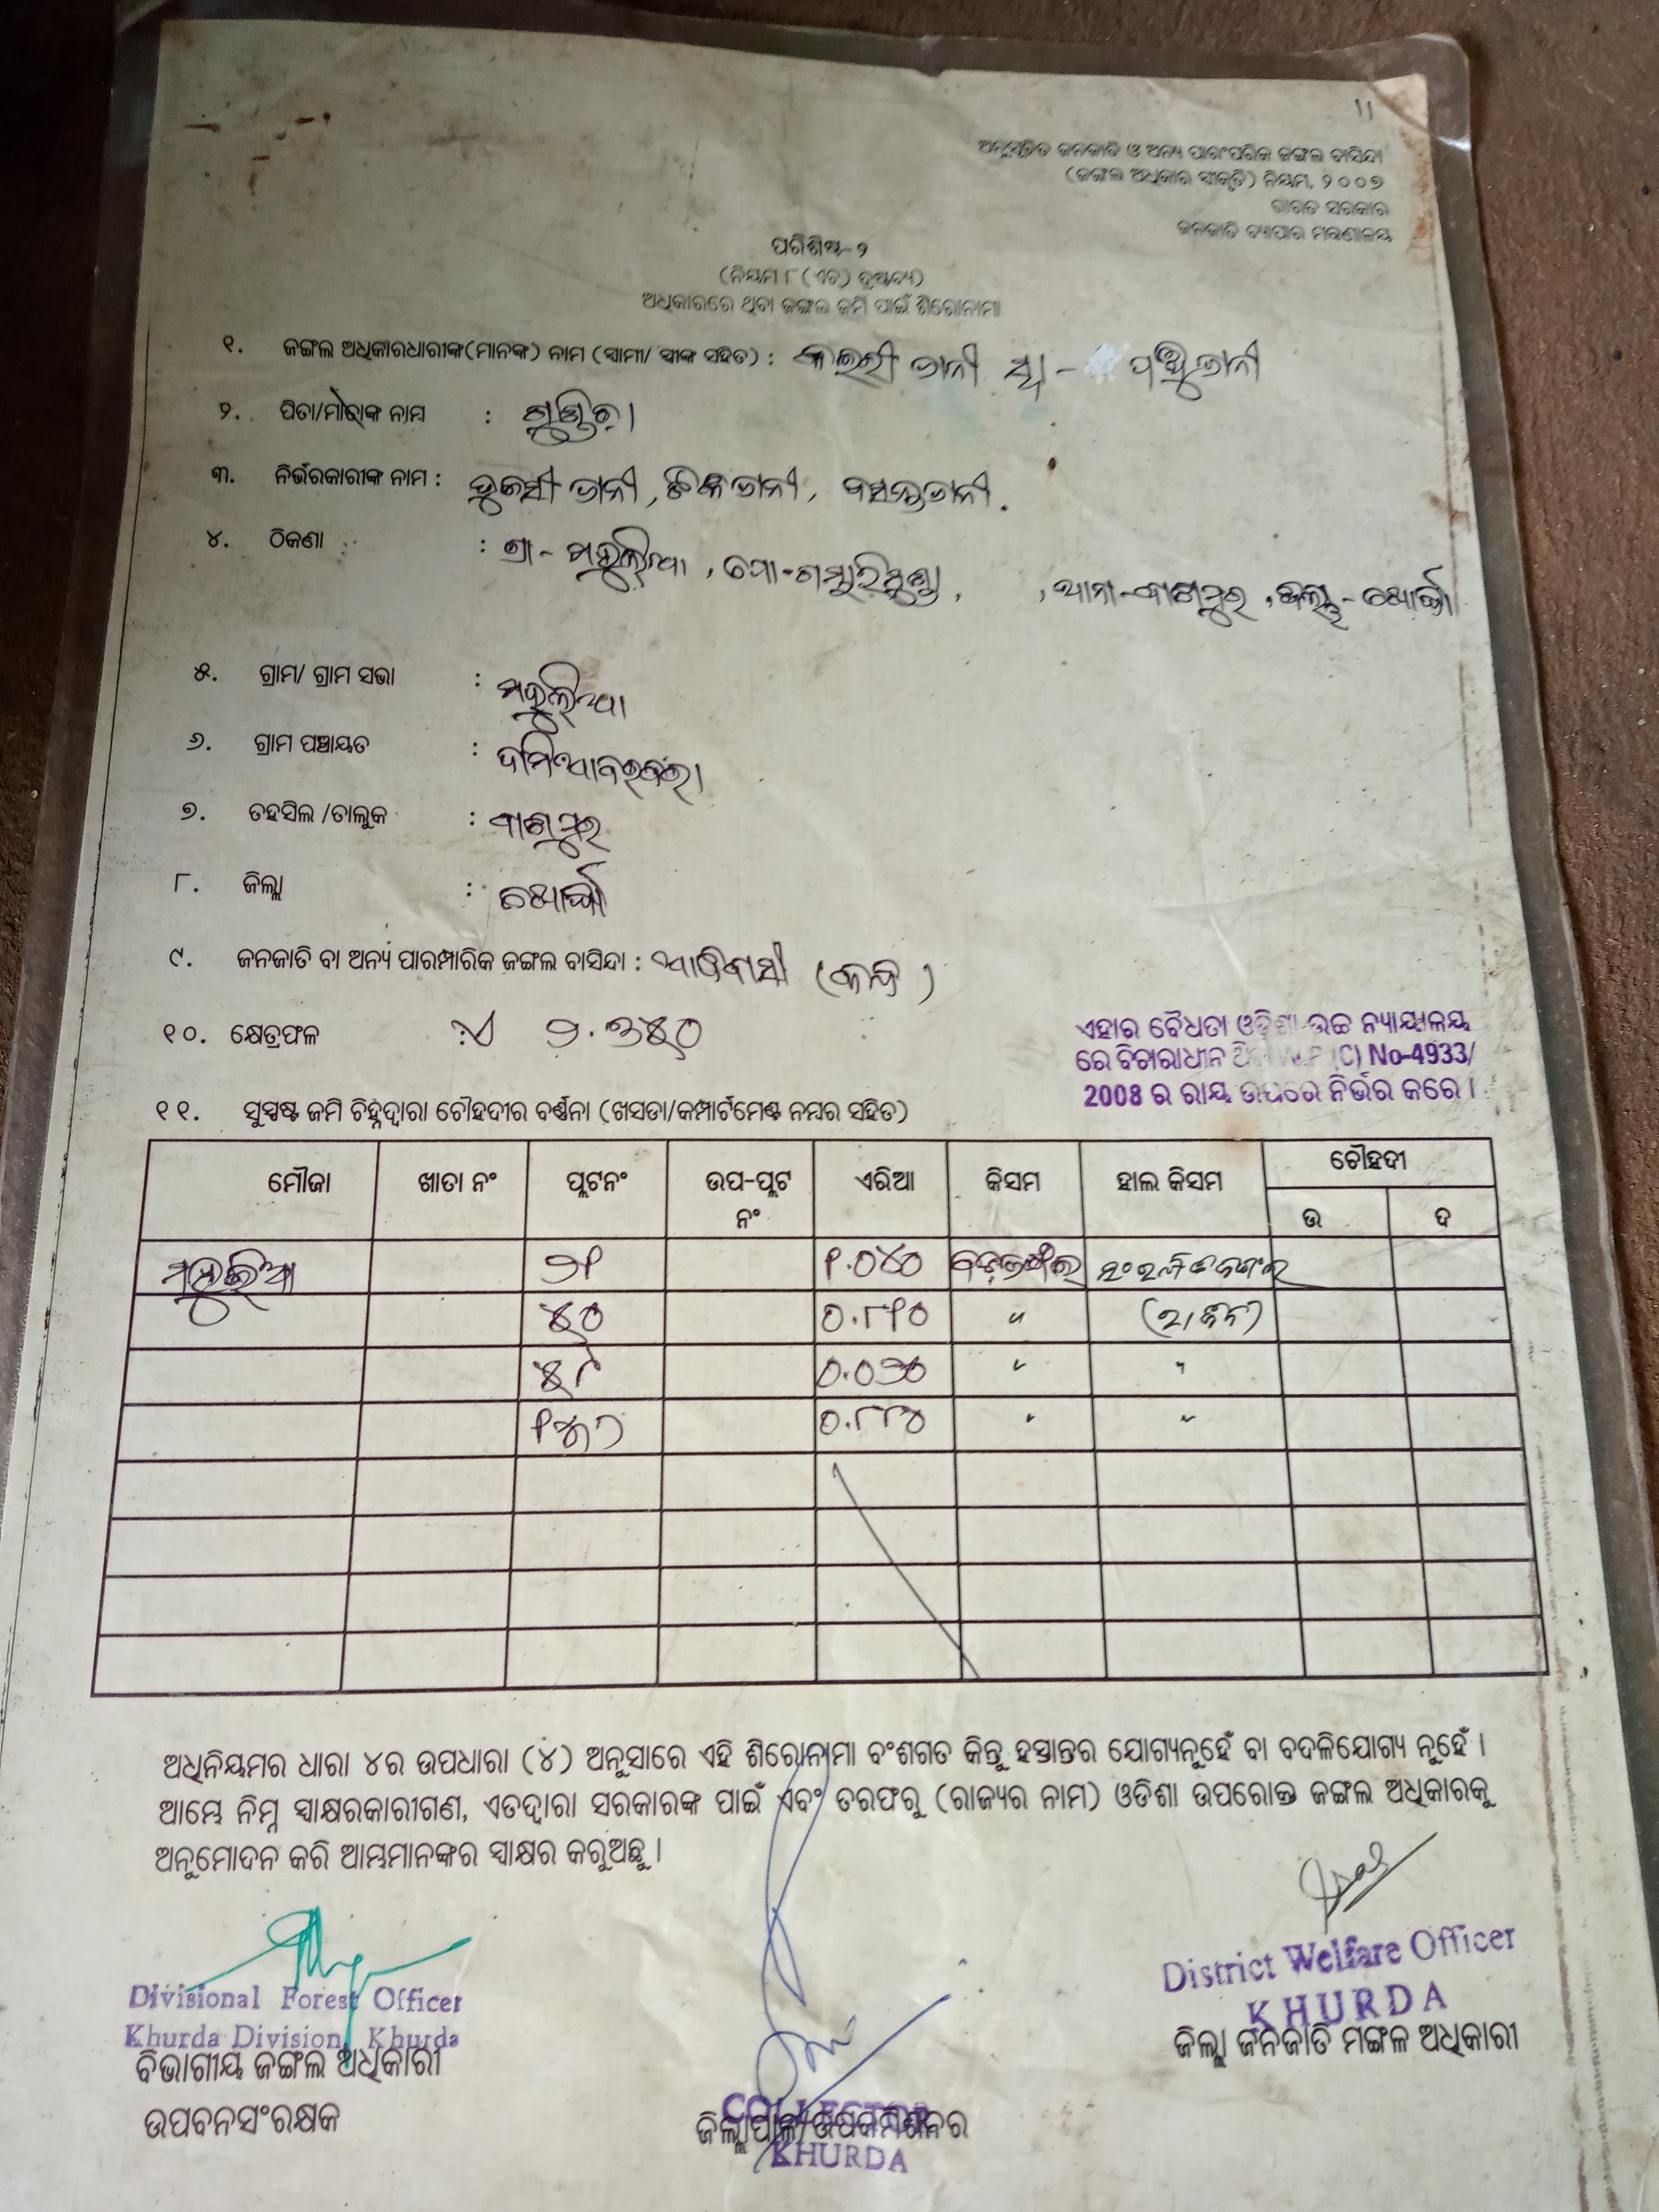 ୧।
ଅନୁସୂଚିତ ଜନଜାତି ଓ ଅନ୍ୟ ପାରଂପରିକ ଜଙ୍ଗଲ ବାସିନ୍ଦା
(ଜଙ୍ଗଲ ଅଧିକାର ସ୍ୱୀକୃତି) ନିୟମ, ୨୦୦୭
ଭାରତ ସରକାର
ଜନଜାତି ବ୍ୟାପାର ମନ୍ତ୍ରଣାଳୟ
ପରିଶିଷ୍ଟ-୨
(ନିୟମ ୮ (ଏଚ) ଦ୍ରଷ୍ଟବ୍ୟ)
ଅଧିକାରରେ ଥିବା ଜଙ୍ଗଲ ଜମି ପାଇଁ ଶିରୋନାମା
୧. ଜଙ୍ଗଲ ଅଧିକାରଧାରୀଙ୍କ(ମାନଙ୍କ) ନାମ (ସ୍ୱାମୀ/ ସ୍ତ୍ରୀଙ୍କ ସହିତ) : ଜାନୀ
୨. ପିତା/ମାତାଙ୍କ ନାମ :
୩. ନିର୍ଭରକାରୀଙ୍କ ନାମ : ଜାନୀ,
୪. ଠିକଣା : ଗ୍ରା- ମହୁଲିଆ, ପୋ- , ଥାନା-ବାଣପୁର, ଜିଲ୍ଲା-ଖୋର୍ଦ୍ଧା
୫. ଗ୍ରାମ/ ଗ୍ରାମ ସଭା : ମହୁଲିଆ
୬. ଗ୍ରାମ ପଞ୍ଚାୟତ :
୭. ତହସିଲ /ତାଲୁକ : ବାଣପୁର
୮. ଜିଲ୍ଲା : ଖୋର୍ଦ୍ଧା
୯. ଜନଜାତି ବା ଅନ୍ୟ ପାରମ୍ପାରିକ ଜଙ୍ଗଲ ବାସିନ୍ଦା : ଆଦିବାସୀ (କନ୍ଧ)
୧୦. କ୍ଷେତ୍ରଫଳ : ଏ ୨.୭୫୦
ଏହାର ବୈଧତା ଓଡ଼ିଶା ଉଚ୍ଚ ନ୍ୟାୟାଳୟ
ରେ ବିଚାରାଧୀନ ଥିବା W.P (C) No-4933/
2008 ର ରାୟ ଉପରେ ନିର୍ଭର କରେ ।
୧୧. ସୁସ୍ପଷ୍ଟ ଜମି ଚିହ୍ନଦ୍ୱାରା ଚୌହଦୀର ବର୍ଣ୍ଣନା (ଖସଡା/କମ୍ପାର୍ଟମେଣ୍ଟ ନମ୍ବର ସହିତ)
ମୌଜା ଖାତା ନଂ ପ୍ଲଟନଂ ଉପ-ପ୍ଲଟ ନଂ ଏରିଆ କିସମ ହାଲ କିସମ ଚୌହଦୀ
ଉ ଦ
ମହୁଲିଆ ୨୧ ୧.୦୪୦
୫୦ ୦.୮୧୦ "
୫୮ ୦.୦୨୦ " "
୦.୮୮୦ " "
ଅଧିନିୟମର ଧାରା ୪ର ଉପଧାରା (୪) ଅନୁସାରେ ଏହି ଶିରୋନାମା ବଂଶଗତ କିନ୍ତୁ ହସ୍ତାନ୍ତର ଯୋଗ୍ୟନୁହେଁ ବା ବଦଳିଯୋଗ୍ୟ ନୁହେଁ ।
ଆମ୍ଭେ ନିମ୍ନ ସ୍ୱାକ୍ଷରକାରୀଗଣ, ଏତଦ୍ୱାରା ସରକାରଙ୍କ ପାଇଁ ଏବଂ ତରଫରୁ (ରାଜ୍ୟର ନାମ) ଓଡିଶା ଉପରୋକ୍ତ ଜଙ୍ଗଲ ଅଧିକାରକୁ
ଅନୁମୋଦନ କରି ଆମ୍ଭମାନଙ୍କର ସ୍ୱାକ୍ଷର କରୁଅଛୁ ।
Divisional Forest Officer
Khurda Division, Khurda
ବିଭାଗୀୟ ଜଙ୍ଗଲ ଅଧିକାରୀ
ଉପବନସଂରକ୍ଷକ
COLLECTOR
ଜିଲ୍ଲାପାଳ/ଉପକମିଶନର
KHURDA
District Welfare Officer
KHURDA
ଜିଲ୍ଲା ଜନଜାତି ମଙ୍ଗଳ ଅଧିକାରୀ